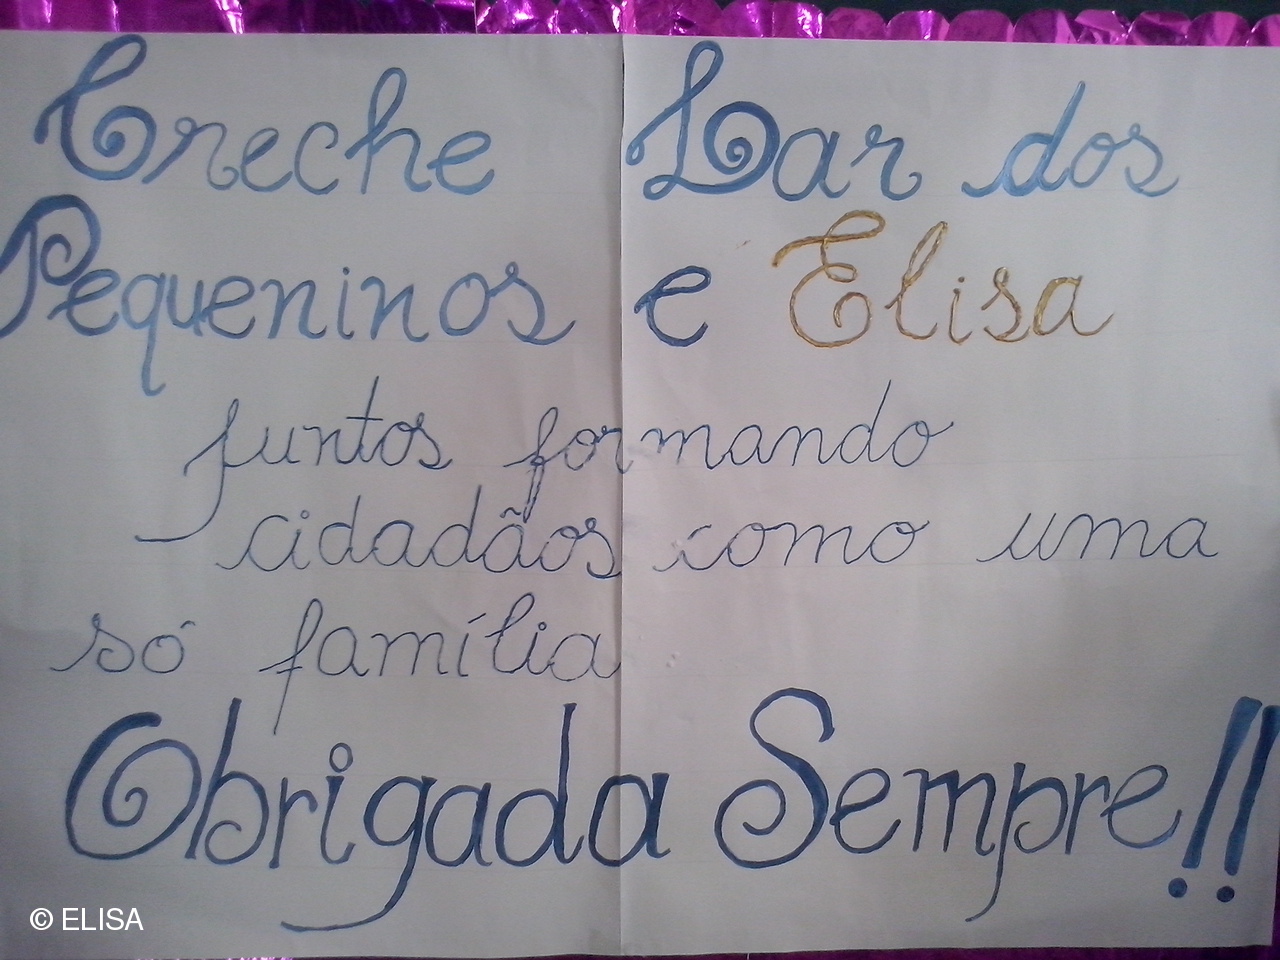 Creche Lar dos
Pequeninos e Elisa
juntos formando
cidadãos como uma
só família
Obrigada Sempre!!
© ELISA